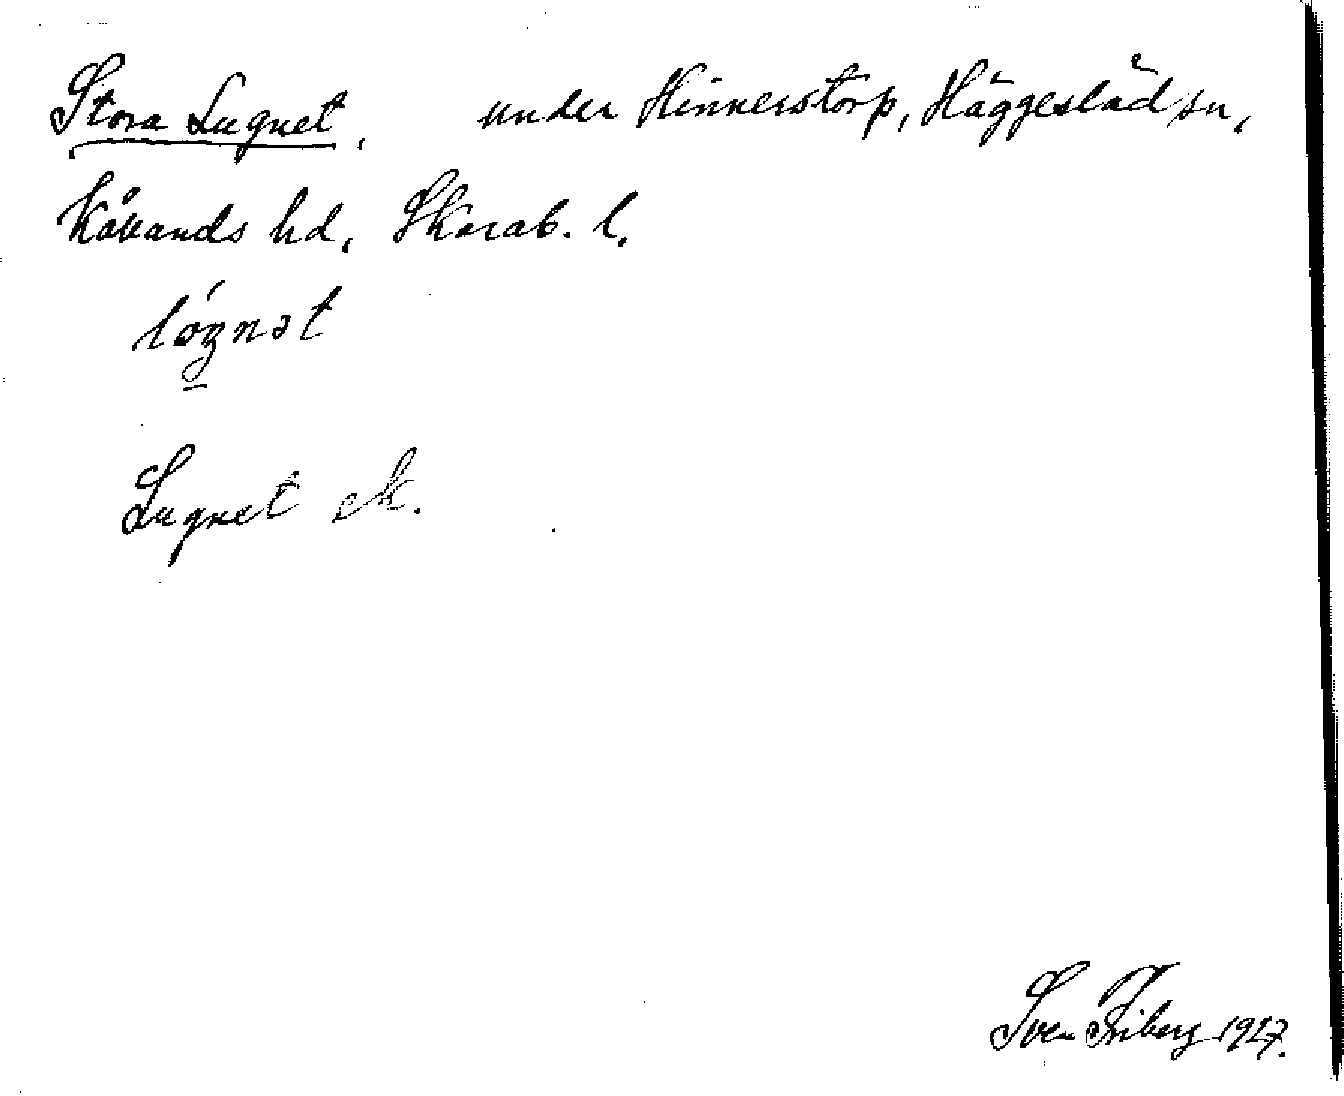 Stora Lugnet, under Hinnerstorp, Häggesled sn,
Kåkands hd, Skarab. l.
lógnət
Lugnet
Sven Friberg 1927.